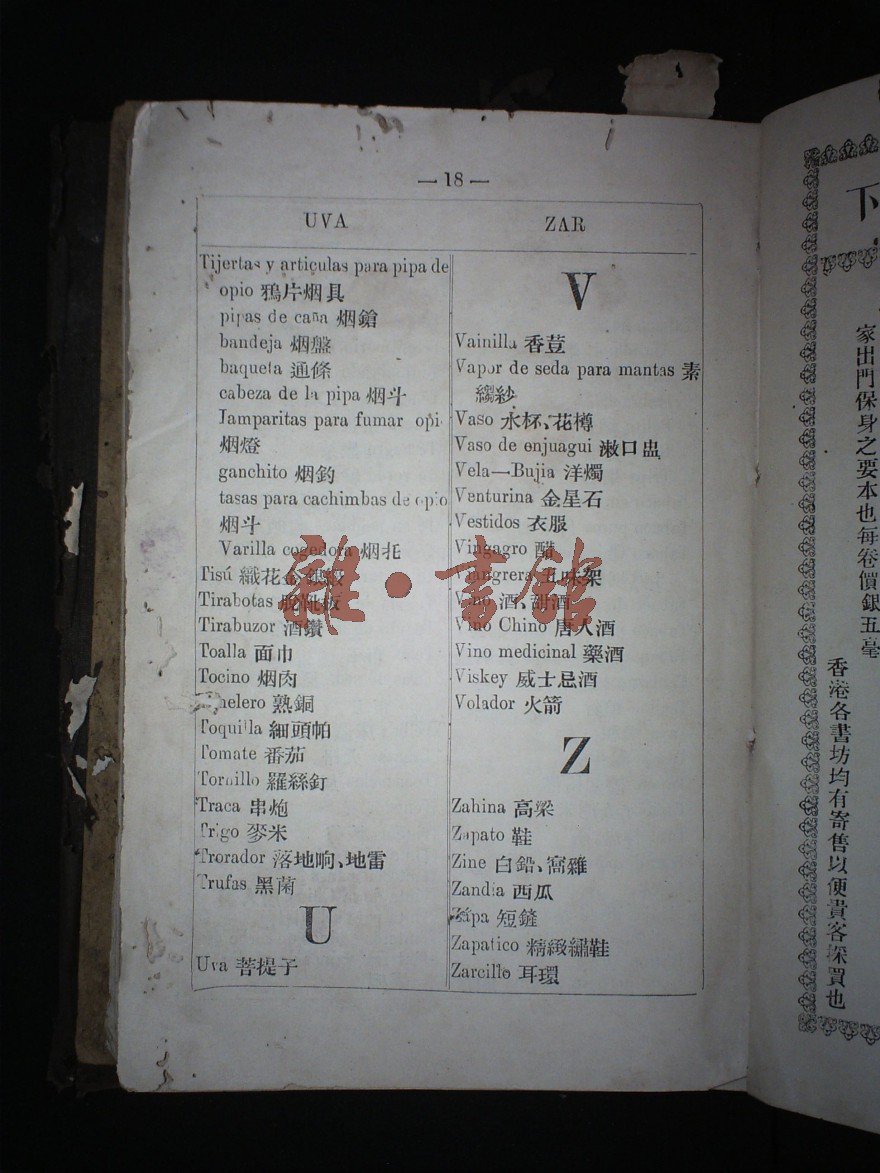 — 18 —
UVA
ZAR
Tijertas y articulas para pipa de
opio 鴉片烟具
pipas de caña 烟鎗
bandeja 烟盤
baqueta 通條
cabeza de la pipa 烟斗
Jamparitas para fumar opi
烟燈
ganchito 烟釣
tasas para cachimbas de opio
烟斗
Varilla cogedora 烟托
Tisú 織花金銀緞
Tirabotas 脫靴板
Tirabuzor 酒鑽
Toalla 面巾
Tocino 烟肉
nelero 熟銅
Toquilla 細頭帕
Tomate 番茄
Tornillo 羅絲釘
Traca 串炮
Trigo 麥米
Trorador 落地响、地雷
Trufas 黑菌
U
Uva 菩提子
V
Vainilla 香荳
Vapor de seda para mantas 素
縐紗
Vaso 水杯、花樽
Vaso de enjuagui 漱口盅
Vela—Bujia 洋燭
Venturina 金星石
Vestidos 衣服
Vingagro 醋
Vinngrera 五味架
Vino 酒、甜酒
Vino Chino 唐人酒
Vino medicinal 藥酒
Viskey 威士忌酒
Volador 火箭
Z
Zahina 高梁
Zapato 鞋
Zine 白鉛、窩雞
Zandia 西瓜
Zapa 短鏟
Zapatico 精緻繡鞋
Zarcillo 耳環
雜·書館
下
家出門保身之要本也每卷價銀五毫
香港各書坊均有寄售以便貴客採買也